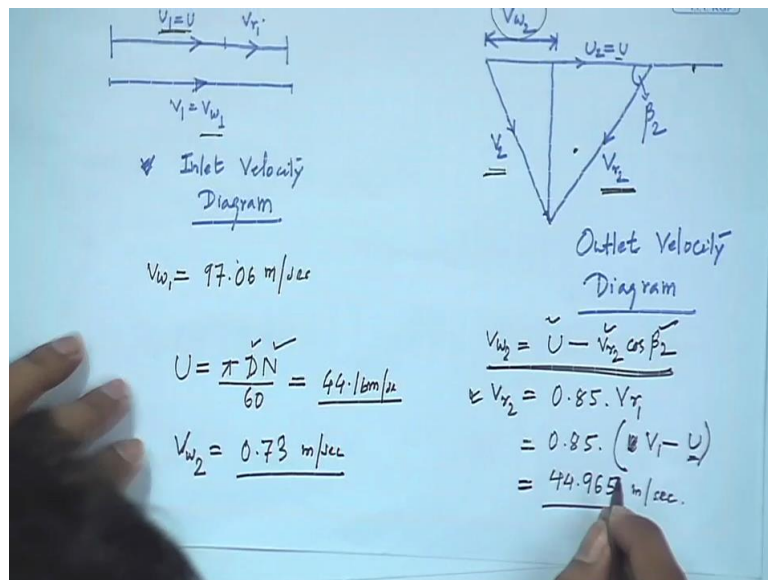 U₁=U Vr₁
V₁ = Vw₁
Inlet Velocity
Diagram
Vw₁ = 97.06 m/sec
U = πDN/60 = 44.16m/s
Vw₂ = 0.73 m/sec
Vw₂
U₂=U
β₂
V₂
Vr₂
Outlet Velocity
Diagram
Vw₂ = U − Vr₂ cos β₂
Vr₂ = 0.85. Vr₁
= 0.85. (V₁ − U)
= 44.965 m/sec.